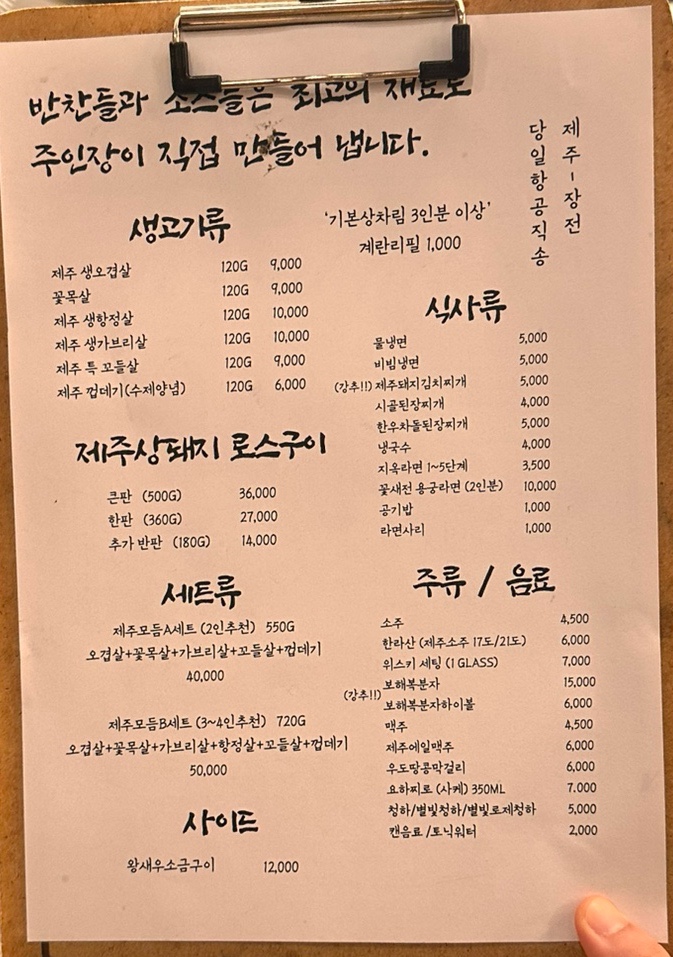 반찬들과 소스들은 최고의 재료로
주인장이 직접 만들어 냅니다.
제주-장전
당일항공직송
'기본상차림 3인분 이상'
계란리필 1,000
생고기류
제주 생오겹살 120G 9,000
꽃목살 120G 9,000
제주 생항정살 120G 10,000
제주 생가브리살 120G 10,000
제주 특 꼬들살 120G 9,000
제주 껍데기(수제양념) 120G 6,000
제주상돼지 로스구이
큰판 (500G) 36,000
한판 (360G) 27,000
추가 반판 (180G) 14,000
세트류
제주모듬A세트 (2인추천) 550G
오겹살+꽃목살+가브리살+꼬들살+껍데기
40,000
제주모듬B세트 (3~4인추천) 720G
오겹살+꽃목살+가브리살+항정살+꼬들살+껍데기
50,000
사이드
왕새우소금구이 12,000
식사류
물냉면 5,000
비빔냉면 5,000
(강추!!) 제주돼지김치찌개 5,000
시골된장찌개 4,000
한우차돌된장찌개 5,000
냉국수 4,000
지옥라면 1~5단계 3,500
꽃새전 용궁라면 (2인분) 10,000
공기밥 1,000
라면사리 1,000
주류 / 음료
소주 4,500
한라산 (제주소주 17도/21도) 6,000
위스키 세팅 (1 GLASS) 7,000
(강추!!)
보해복분자 15,000
보해복분자하이볼 6,000
맥주 4,500
제주에일맥주 6,000
우도땅콩막걸리 6,000
요하찌로 (사케) 350ML 7.000
청하/별빛청하/별빛로제청하 5,000
캔음료 /토닉워터 2,000